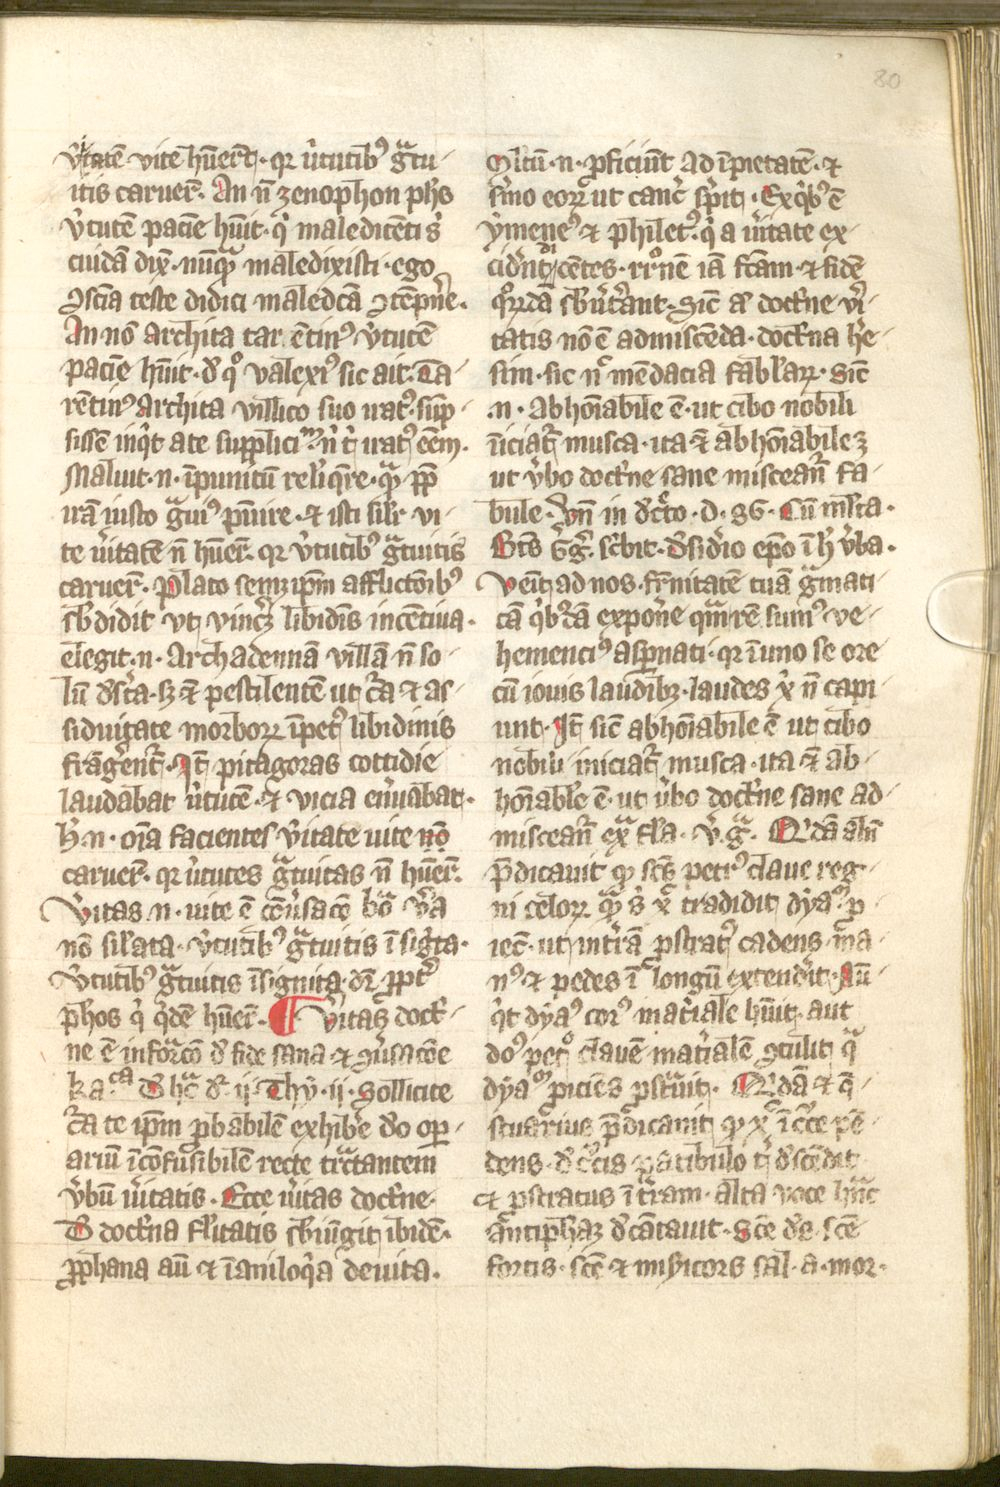 80
v̾itatē vite hn̄er̄t · qr v̾tutib⁹ gͣtu-
itis caruer̄ · An n̄ zenophon phs
v̾tutē pacīe hūit · qͥ maledicēti s̾
cuidā dix̄ · nūqͣ maledixisti · ego
ꝯsciā teste didici maledcā ꝯtēpn̾e ·
An nō archita tar ētin⁹ v̾tutē
pacīe hūit · đ qͦ valexi⁹ sic ait · Ta-
rētin⁹ Archita villico suo irat⁹ · sūp-
sissē inqͥt a te suppliciᵐ · n̾ tͥ irat⁹ eēm ·
Maluit · n · īpunitū relīqr̾e · qͣ ꝓp̄
irā iusto gͣui⁹ pūire · ⁊ isti silr̄ vi-
te v̾itatē n̄ hn̄er̄ · qr v̾tutib⁹ gͣtuitis
caruer̄ · Plato semꝫip̄m afflictōib⁹
sb̄didit vt vinc̾ꝫ libidīs incētiua ·
elegit · n · Archademiā villā n̄ so-
lū dsc̾ta · sꝫ ⁊ pestilentē ut cͣa ⁊ as-
siduitate morboꝝ īpet⁹ libidinis
frāgerēt᷑ · It̄ pitagoras cottidie
laudabat v̾tutē · ⁊ vicia en̾uabat ·
h̾ · n · oīa facientes v̾itate uite nō
caruer̄ · qr v̾tutes gͣtuitas n̄ hn̄er̄ ·
V̾itas n · uite ē cōu̾sacō bōͣ v̾a
nō sil̾ata · v̾tutib⁹ gͣtuitis īsigͥta ·
v̾tutib⁹ gͣtuitis īsignita dr̄ · ꝓpt̾
phos qͥ qͥdē hn̄er̄ · ¶ V̾itas doct̾-
ne ē informͣcō đ fide sana ⁊ ꝯu̾sacōe
ka · cᵃ D̾ hͨ đr · ij · Thy̾ · ij · Sollicite
cͣa te ip̄m ꝓbabilē exhib̾e d̾o op-
ariū īcōfusibilē recte trͣctantem
v̾bū v̾itatis · Ecce v̾itas doct̾ne ·
D̾ doct̾na fl̾itatis sb̄iūgit ibidē ·
ꝓphana aū ⁊ īaniloqͥa deuita ·
Mltū · n · ꝓficiūt ad īpietatē · ⁊
s̾mo eoꝝ ut canc̾ s̾pit · Ex qͥb⁹ ē
ẏmene⁹ ⁊ philet⁹ · qͥ a v̾itate ex-
cid̾nt dicētes · rr̾onē iā fcām · ⁊ fidē
qͦꝝdā sb̄u̾t̾ant · Sic̄ aͭ doct̾ne v̾i-
tatis nō ē admiscēda · doct̾na h̾e-
sim · sic n̾ mēdacia fabl̾aꝝ · Sic̄
· n · abhoīabile ē · ut cibo nobili
īiciat᷑ musca · ita ⁊ abhoīabile ꝫ
ut v̾bo doct̾ne sane misceant᷑ fa-
bule · Vn̄ in dc̾to · d · 86 · Cū m̄lta ·
Bt̄s G̾g̾ · sc̾bit · d̾sid̾io ep̄o ī h̾ v̾ba ·
Venit ad nos · fr̾nitatē tuā gͣmati-
cā qͥb⁹dā expon̾e quā rē sum⁹ ve-
hemenci⁹ asp̾nati · qr ī uno se ore
cū iouis laudibꝫ · laudes x̾ n̄ capi
unt · It̄ sic̄ abhoīabile ē ut cibo
nobili iniciat᷑ musca · ita ⁊ ab-
hoīable ē · ut v̾bo doct̾ne sane ad-
misceant᷑ exͣ fl̾a · v̾ · gͣ · Qͥdā abīt
p̄dicauit ꝙ sc̄s petr⁹ claue reg-
ni celoꝝ qͣ s̾ x̾ tradidit dẏaᵒ ꝓ
iec̄ · ut intr̾a pstrat⁹ cadens mͣa-
n⁹ ⁊ pedes ī longū extend̾it · Nū
qͥt dẏa⁹ cor⁹ mat̾iale hūit · aut
do⁹ petͦ clauē mat̾ialē ꝯtulit qͣ
dẏaᵐ ꝓiciēs pstͣuit · Qͥdā ⁊ qͥ-
stuaͬri⁹ p̄dicauit ꝙ x̾ ī cͨce pē-
dens · đ cͨcis patibulo t̾ d̾scēdit
⁊ pstratus ī tr̾am · alta uoce hāc
antiphaꝫ d̾cātauit · Sc̄e d̾s · sc̄e
fortis · sc̄e ⁊ mīs̾icors sal · a · mor-